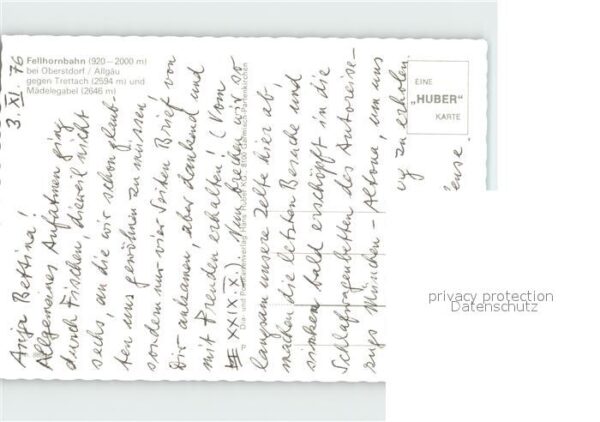 Fellhornbahn (920–2000 m)
bei Oberstdorf / Allgäu
gegen Trettach (2594 m) und
Mädelegabel (2646 m)
EINE
„HUBER“
KARTE
3. XI. 76
Anja Bettina!
Allgemeines Aufatmen ging
durch Fischen, dieweil nicht
sechs, an die wir schon glaub-
ten uns gewöhnen zu müssen,
sondern nur vier Seiten Brief von
Dir ankamen, aber dankend und
mit Freuden erhalten! (Vom
XXIX.X.). Nun brechen wir so
langsam unsere Zelte hier ab,
machen die letzten Besuche und
sinken bald erschöpft in die
Schlafwagenbetten des Autoreise-
zugs München - Altona, um uns
zu erholen.
Dia- und Postkartenverlag Hans Huber KG, 8100 Garmisch-Partenkirchen
privacy protection
Datenschutz